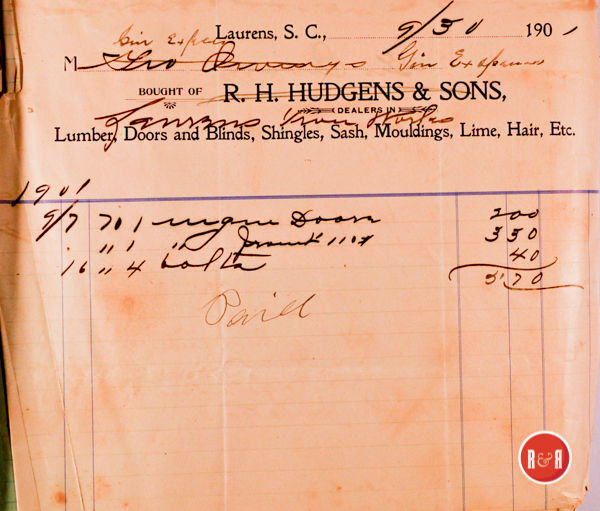 Gin Expen Laurens, S. C., 9/30 1901
M Geo Owings Gin Expenses
BOUGHT OF R. H. HUDGENS & SONS,
DEALERS IN
Laurens Iron Works
Lumber, Doors and Blinds, Shingles, Sash, Mouldings, Lime, Hair, Etc.
1901
9/7 To 1 engine Door 200
" 1 " 350
16 " 4 bolts 40
5 70
Paid
R&R